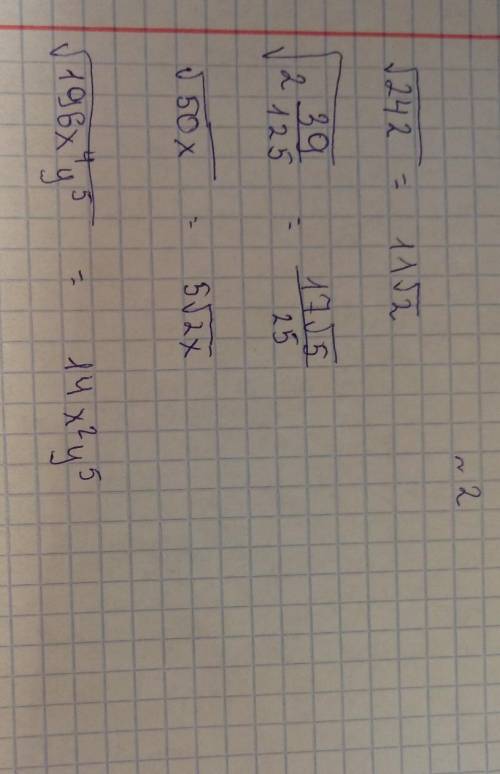 ~ 2
√242 = 11√2
√(2 39/125) = 17√5/25
√50x = 5√2x
√196x⁴y⁵ = 14x²y⁵